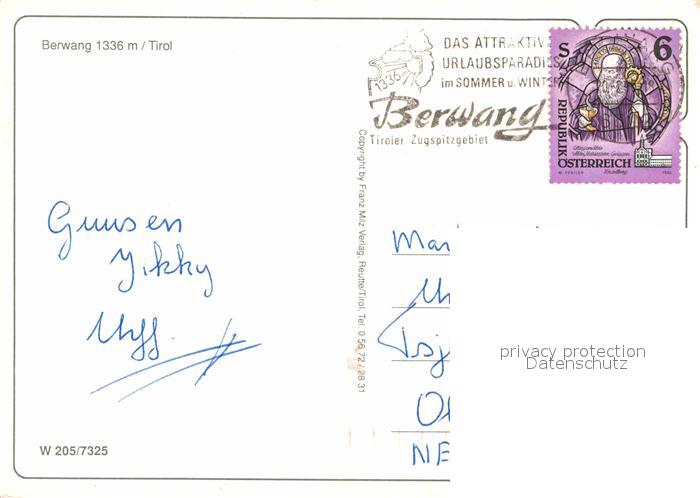 Berwang 1336 m / Tirol
DAS ATTRAKTIVE
URLAUBSPARADIES
im SOMMER u. WINTER
1336
Berwang
Tiroler Zugspitzgebiet
S 6
REPUBLIK
ÖSTERREICH
Copyright by Franz Milz Verlag, Reutte/Tirol, Tel. 0 56 72 / 28 31
Yikky
Mar
Tsj
NE
privacy protection
Datenschutz
W 205/7325